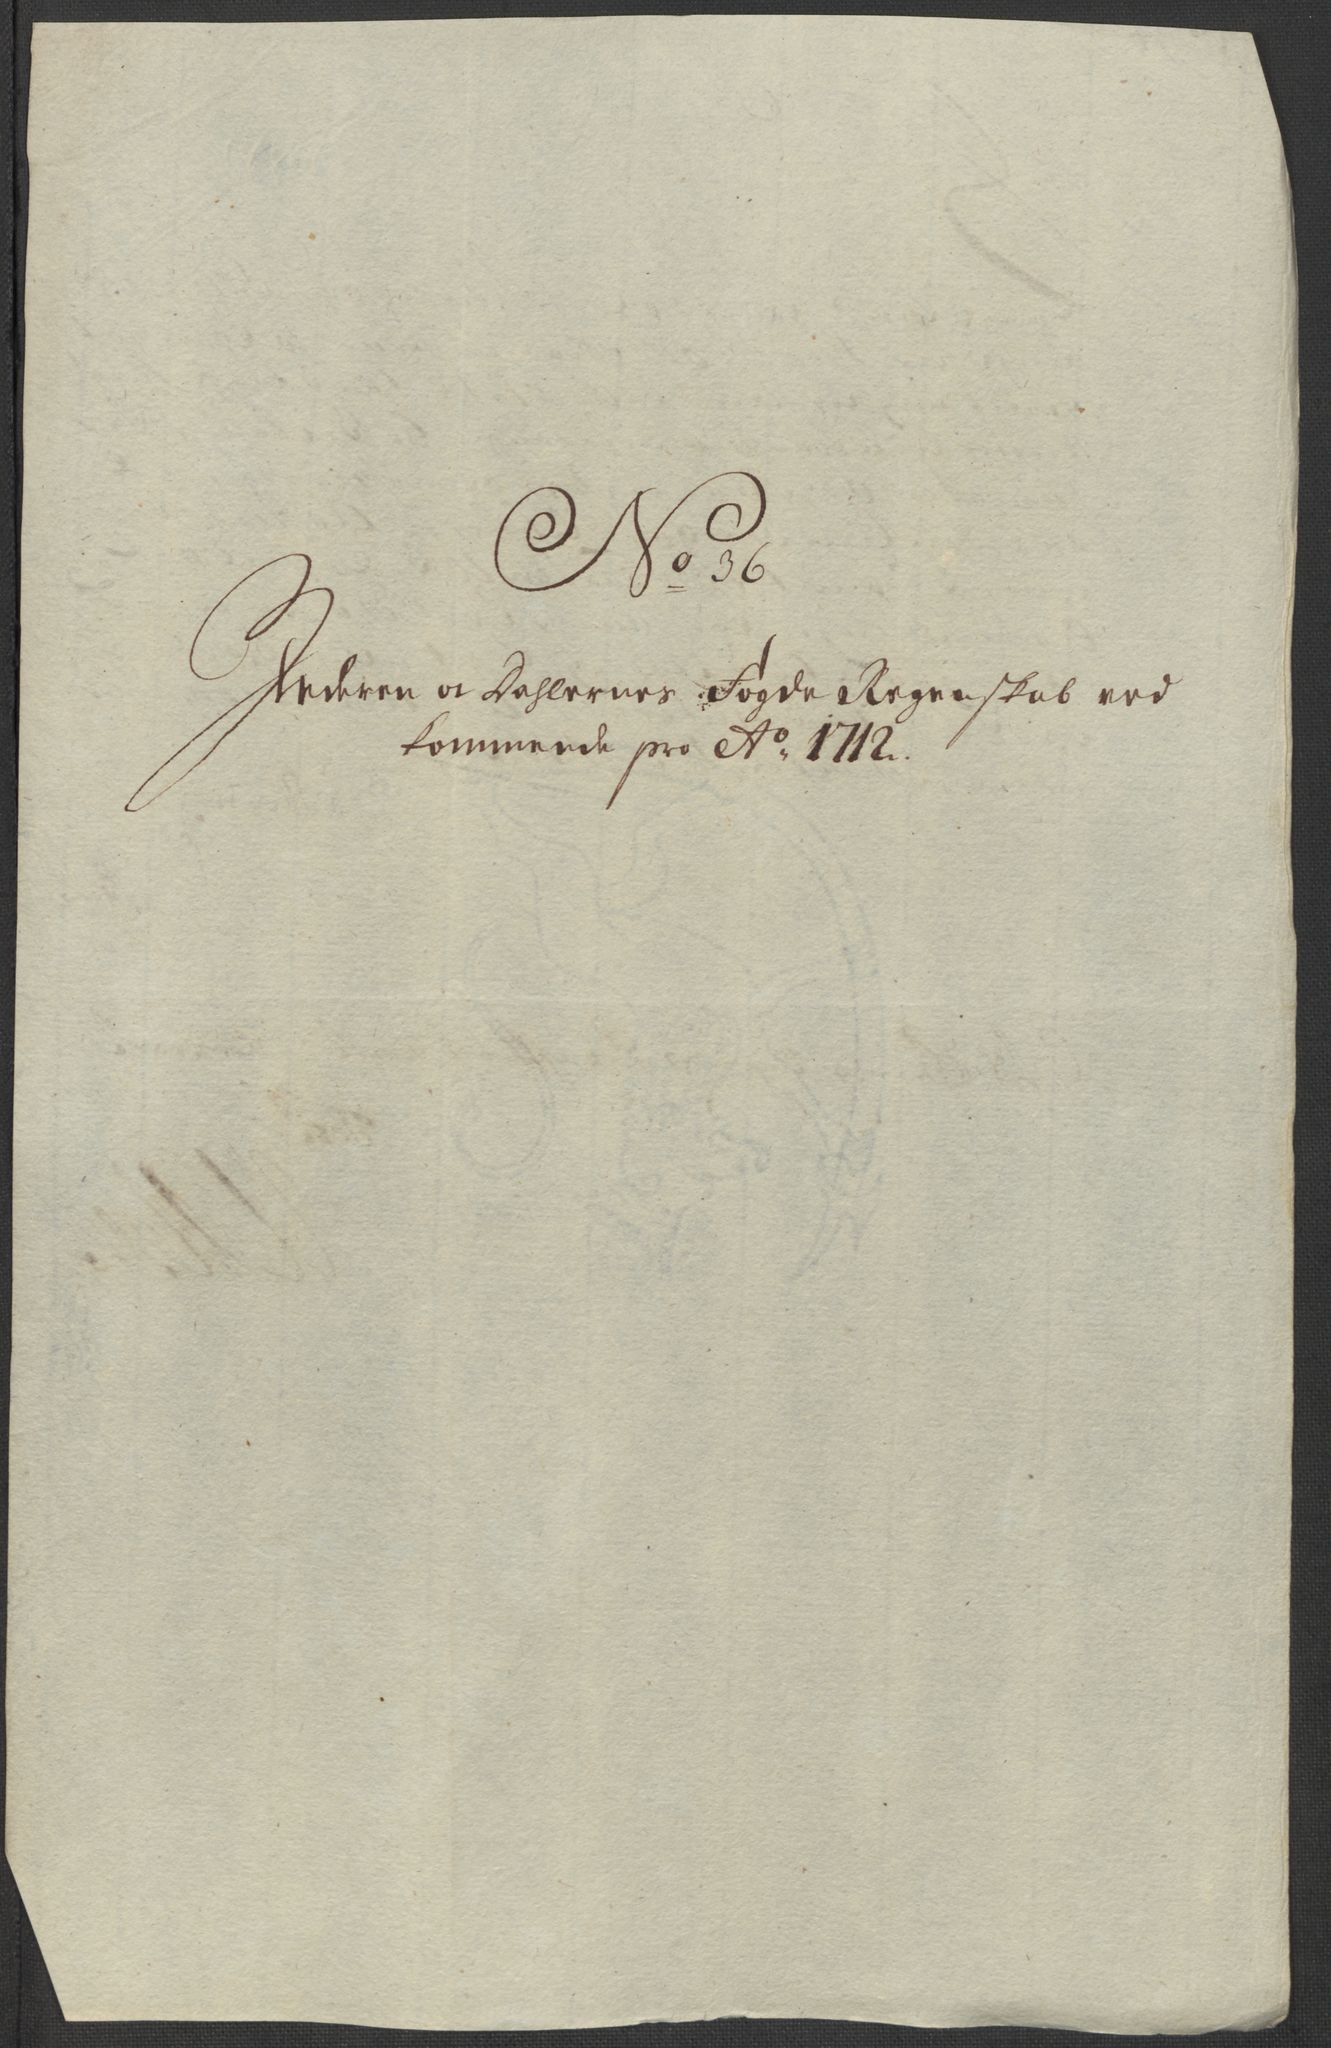 No 36
Jæderen oc Dahlernes Fogde Regenskab ved
kommende pro Ao. 1712.